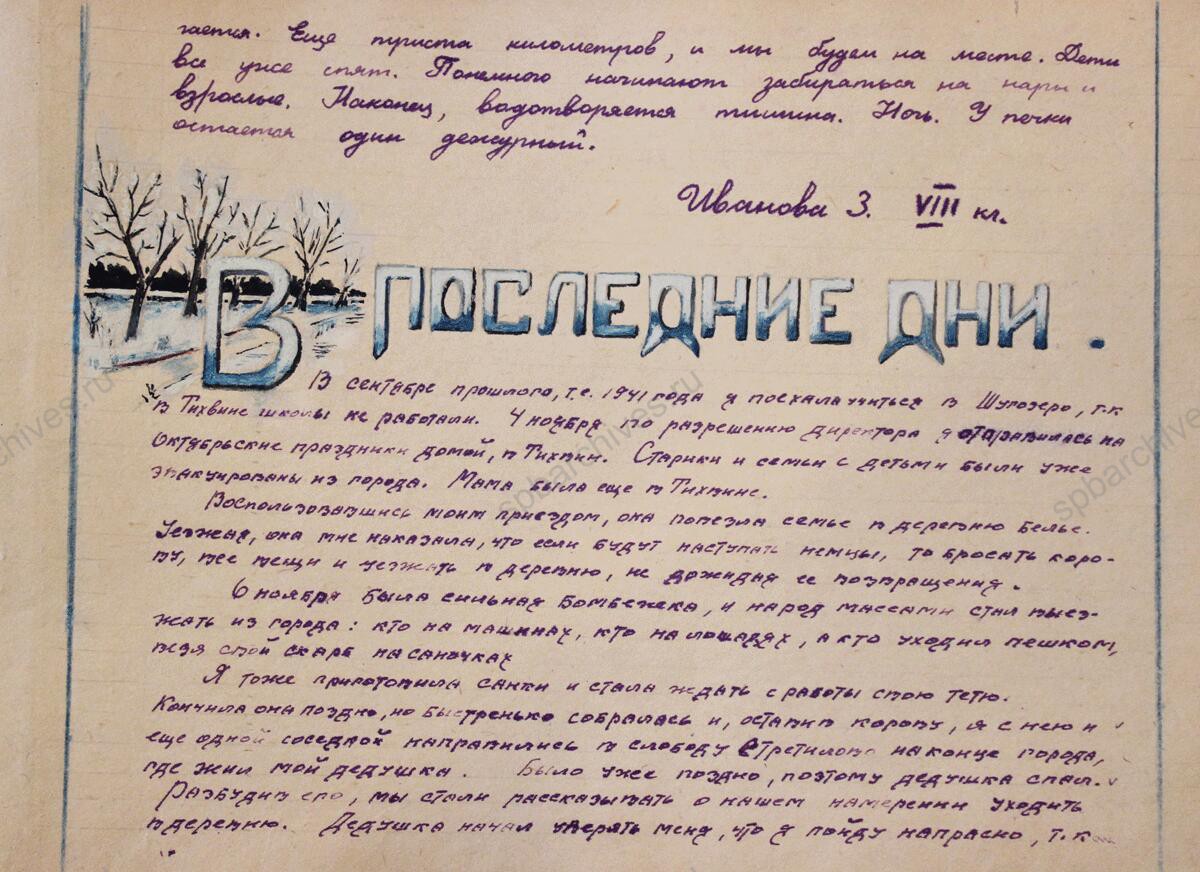 гается. Еще триста километров, и мы будем на месте. Дети
все уже спят. Понемного начинают забираться на нары и
взрослые. Наконец, водотворяется тишина. Ночь. У печки
остается один дежурный.
Иванова З. VIII кл.
В ПОСЛЕДНИЕ ДНИ.
В сентябре прошлого, т.е. 1941 года я поехала учиться в Шугозеро, т.к
в Тихвине школы не работали. 4 ноября по разрешению директора я отправилась на
октябрьские праздники домой, в Тихвин. Старики и семьи с детьми были уже
эвакуированы из города. Мама была еще в Тихвине.
Воспользовавшись моим приездом, она повезла семье в деревню белье.
Уезжая, она мне наказала, что если будут наступать немцы, то бросать коро-
ву, все вещи и уезжать в деревню, не дожидая ее возвращения.
6 ноября была сильная бомбежека, и народ массами стал выез-
жать из города: кто на машинах, кто на лошадях, а кто уходил пешком,
везя свой скарб на саночках
Я тоже приготовила санки и стала ждать с работы свою тетю.
Кончила она поздно, но быстренько собралась и, оставив корову, я с нею и
еще одной соседкой направились в слободу Стретилово на конце города,
где жил мой дедушка. Было уже поздно, поэтому дедушка спал.
Разбудив его, мы стали рассказывать о нашем намерении уходить
в деревню. Дедушка начал уверять меня, что я пойду напрасно, т.к
spbarchives.ru
spbarchives.ru
chives.ru